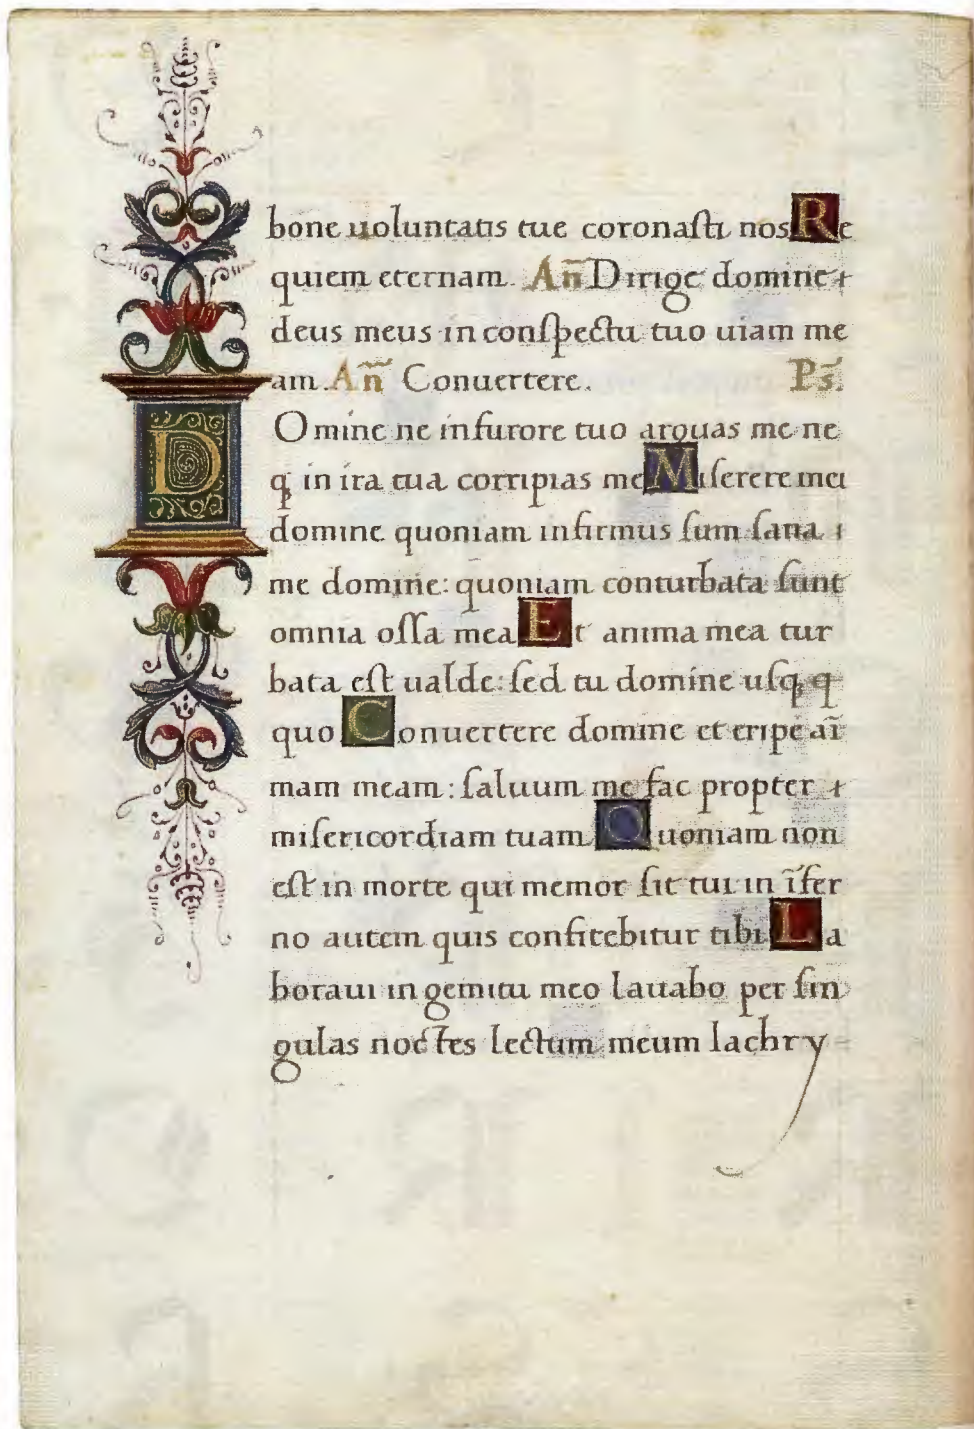 bone uoluntatis tue coronaſti nos Re
quiem eternam. An̄ Dirige domine
deus meus in conſpectu tuo uiam me
am. An̄ Conuertere. Ps̄.
DOmine ne in furore tuo arguas me ne
qꝫ in ira tua corripias me Miſerere mei
domine quoniam infirmus ſum ſana
me domine: quoniam conturbata ſunt
omnia oſſa mea Et anima mea tur
bata eſt ualde: ſed tu domine uſqꝫ q
quo Conuertere domine et eripe aı̄
mam meam: ſaluum me fac propter
miſericordiam tuam Quoniam non
eſt in morte qui memor ſit tui in ı̄fer
no autem quis confitebitur tibi La
boraui in gemitu meo lauabo per ſin
gulas noctes lectum meum lachry